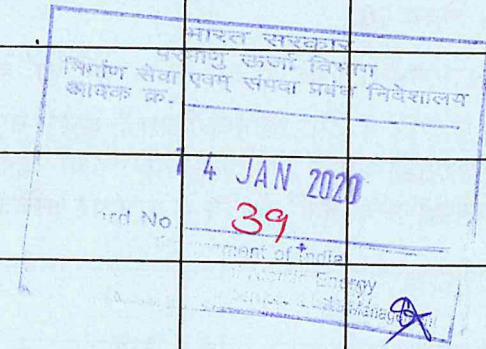 भारत सरकार
परमाणु ऊर्जा विभाग
निर्माण सेवा एवम् संपदा प्रबंध निदेशालय
आवक क्र.
4 JAN 2020
rd No. 39
ment of India
Atomic Energy